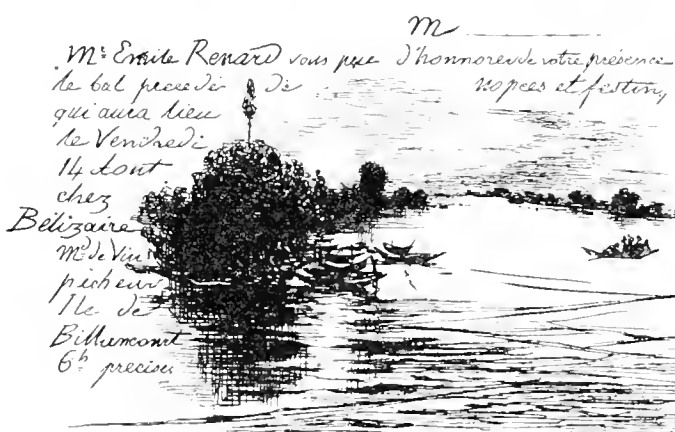 M
Mr Emile Renard vous prie d'honnorer de votre présence
le bal precedé de nopces et festin,
qui aura lieu
le Vendredi
14 Aout
chez
Bélizaire
Md de Vin
pêcheur
Ile de
Billancourt
6h precises